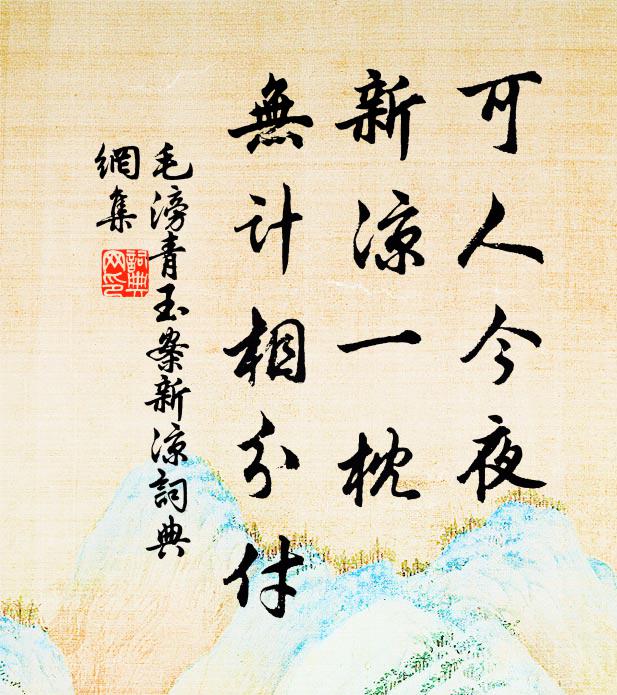 可人今夜
新凉一枕
無計相分付
毛滂青玉案新凉詞典
網集
詞典
网印